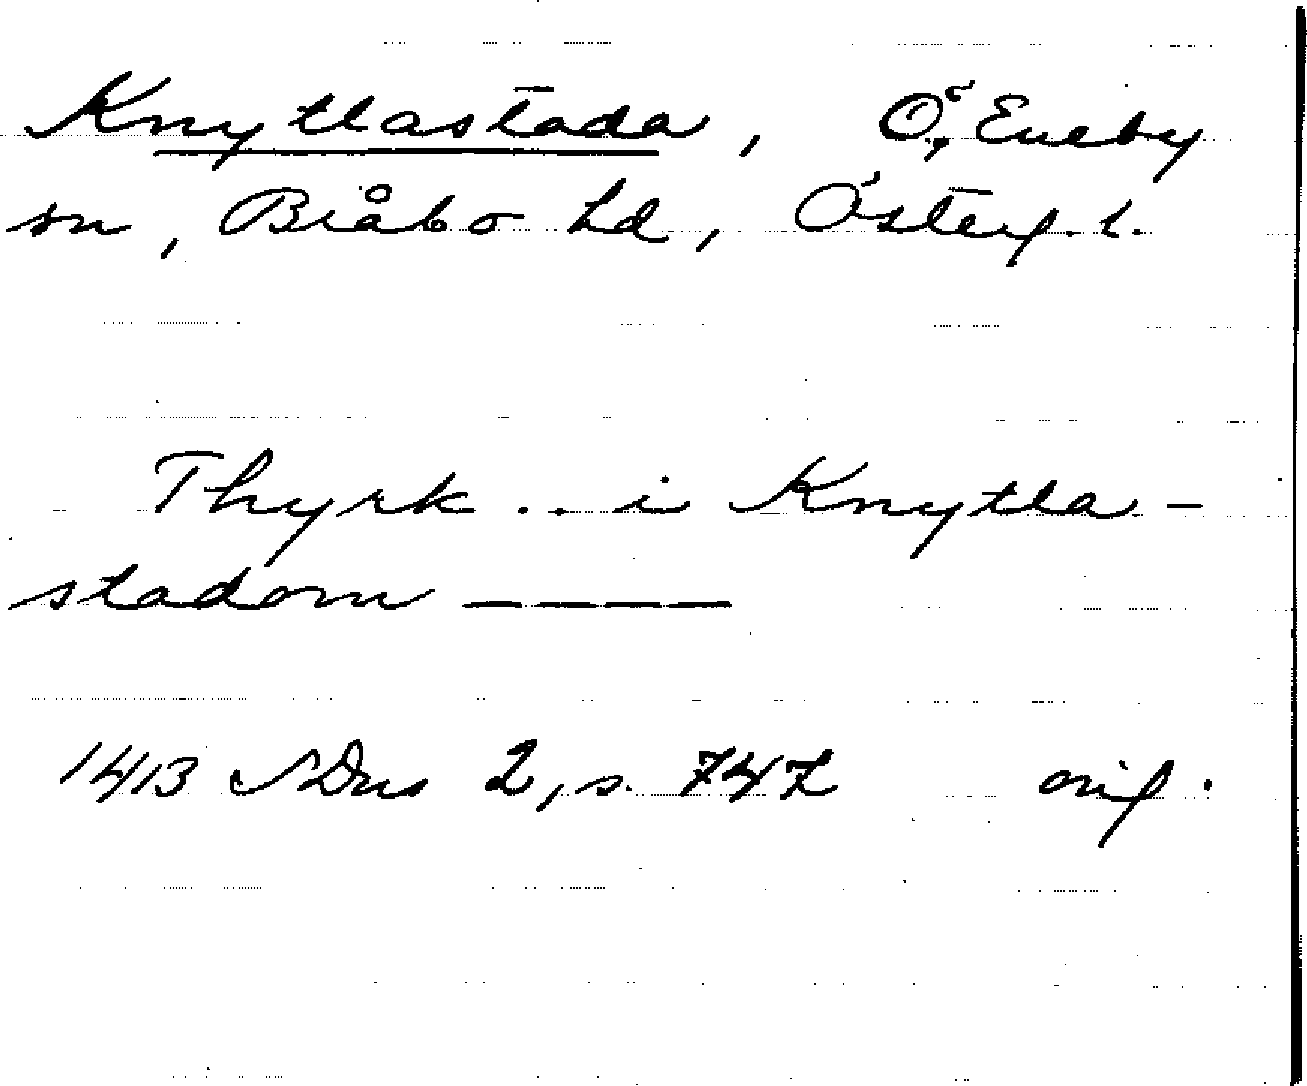 Knytlastada, Ö, Eneby
sn, Bråbo hd, Österg. l.
Thyrk .. i Knytla-
stadom ————
1413 SDns 2, s. 747 orig.